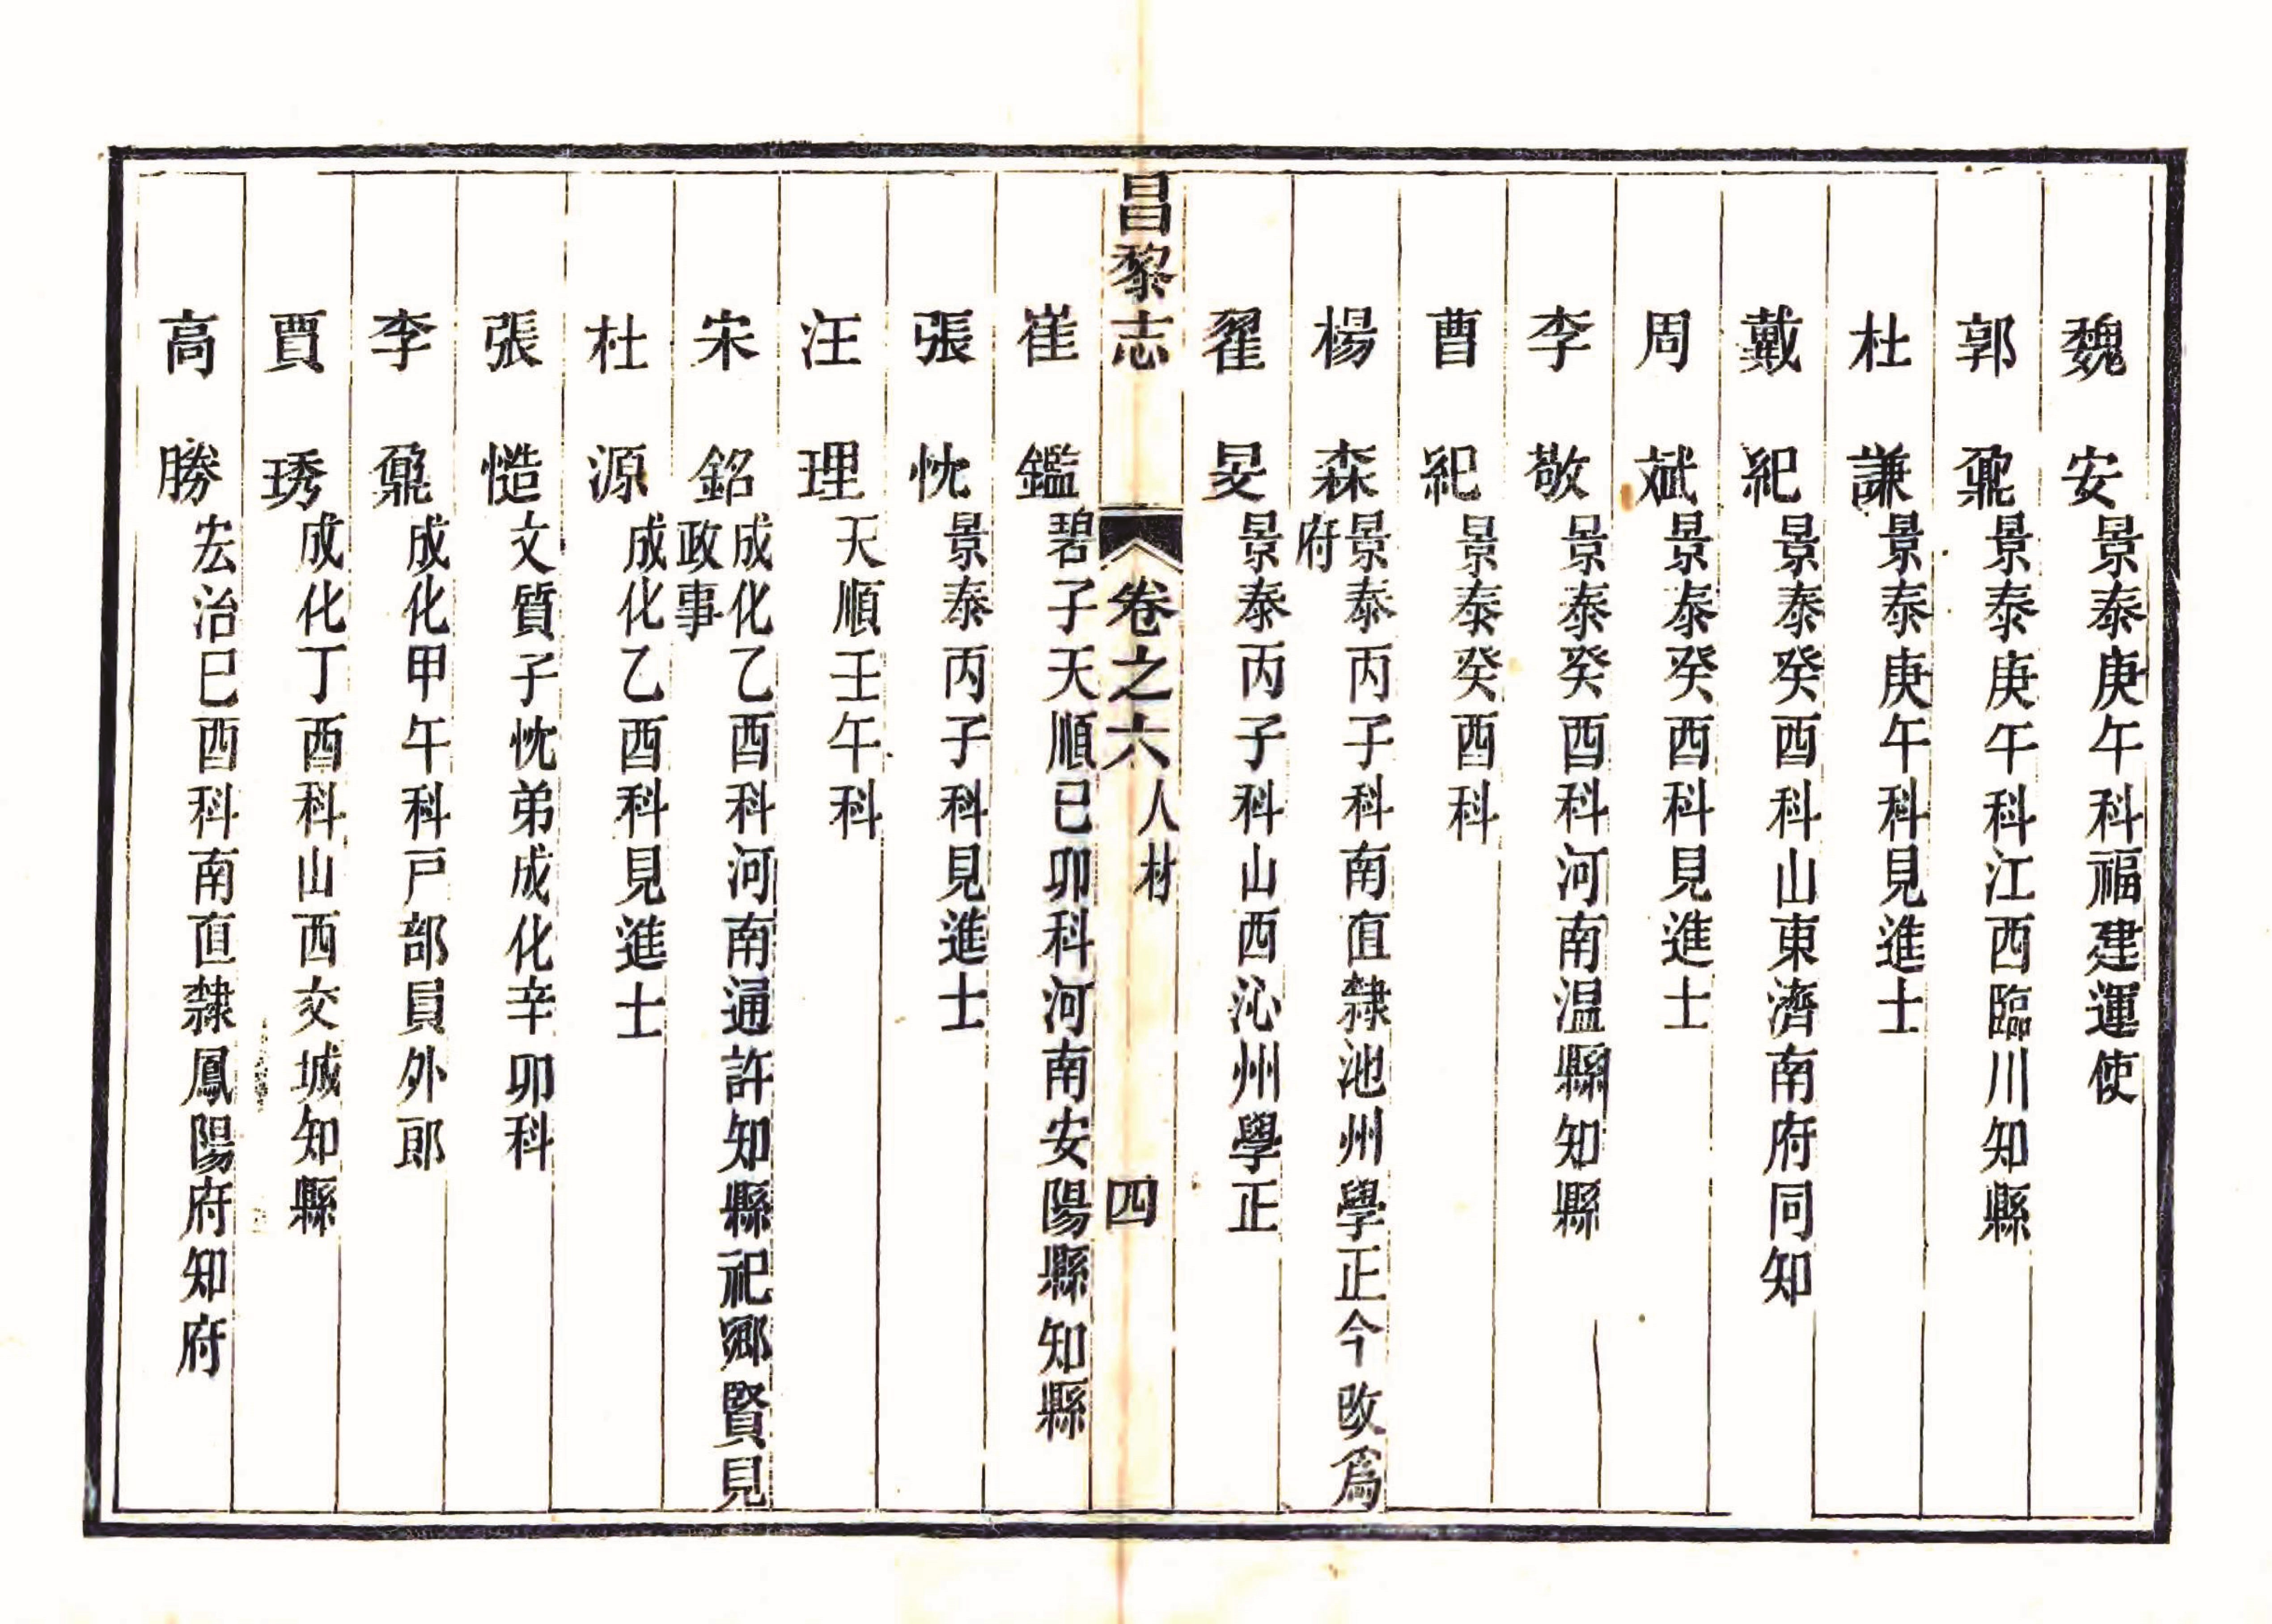 魏 安 景泰庚午科福建運使
郭 鼐 景泰庚午科江西臨川知縣
杜 謙 景泰庚午科見進士
戴 紀 景泰癸酉科山東濟南府同知
周 斌 景泰癸酉科見進士
李 敬 景泰癸酉科河南温縣知縣
曹 紀 景泰癸酉科
楊 森 景泰丙子科南直隸池州學正今改爲
府
翟 旻 景泰丙子科山西沁州學正
昌黎志 卷之六 人材 四
崔 鑑 碧子天順已卯科河南安陽縣知縣
張 忱 景泰丙子科見進士
汪 理 天順壬午科
宋 銘 成化乙酉科河南通許知縣祀鄉賢見
政事
杜 源 成化乙酉科見進士
張 慥 文質子忱弟成化辛卯科
李 鼐 成化甲午科戸部員外郎
賈 琇 成化丁酉科山西交城知縣
高 勝 宏治巳酉科南直隸鳳陽府知府